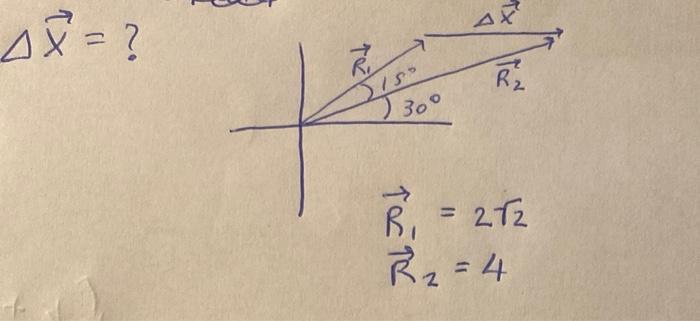 ΔX⃗ = ?
ΔX⃗
R⃗₁
15°
R⃗₂
30°
R⃗₁ = 2√2
R⃗₂ = 4